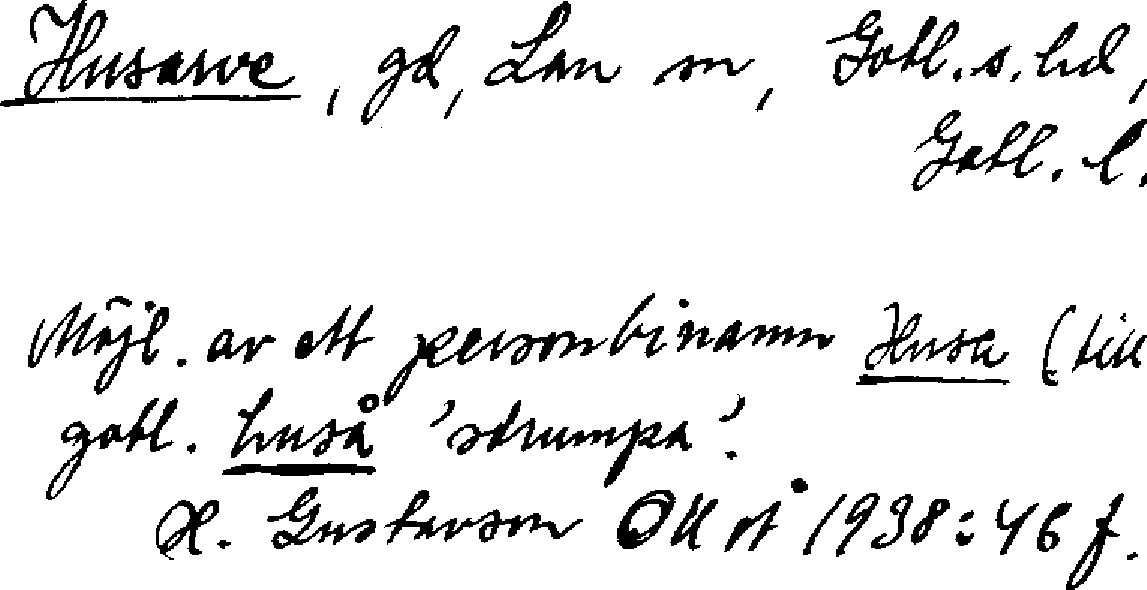 Husarve, gd, Lau sn, Gotl. s. hd,
Gotl. l.
Möjl. av ett personbinamn Husa (till
gotl. huså 'strumpa'.
H. Gustavson OUÅ 1938:46 f.